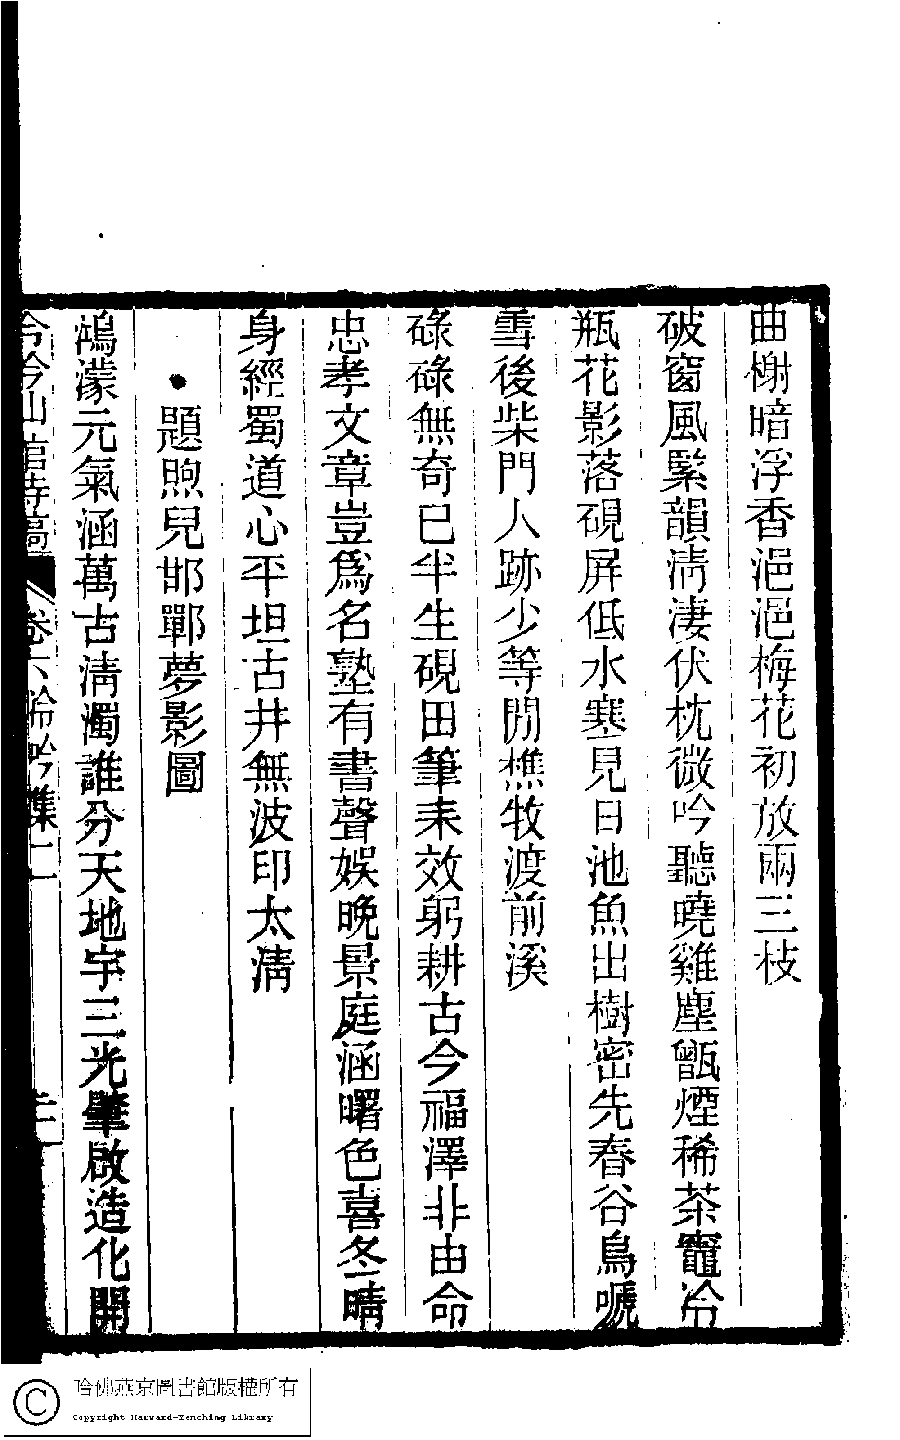 曲榭暗浮香浥浥梅花初放兩三枝
破窗風緊韻淸凄伏枕微吟聽曉雞塵甑煙稀茶竈冷
瓶花影落硯屏低水寒見日池魚出樹密先春谷鳥嗁
雪後柴門人跡少等閒樵牧渡前溪
碌碌無奇已半生硯田筆耒效躬耕古今福澤非由命
忠孝文章豈爲名塾有書聲娛晩景庭涵曙色喜冬晴
身經蜀道心平坦古井無波印太淸
題煦兒邯鄲夢影圖
鴻濛元氣涵萬古淸濁誰分天地宇三光肇啟造化開
山館詩稿 卷六
哈佛燕京圖書館版權所有
Copyright Harvard-Yenching Library